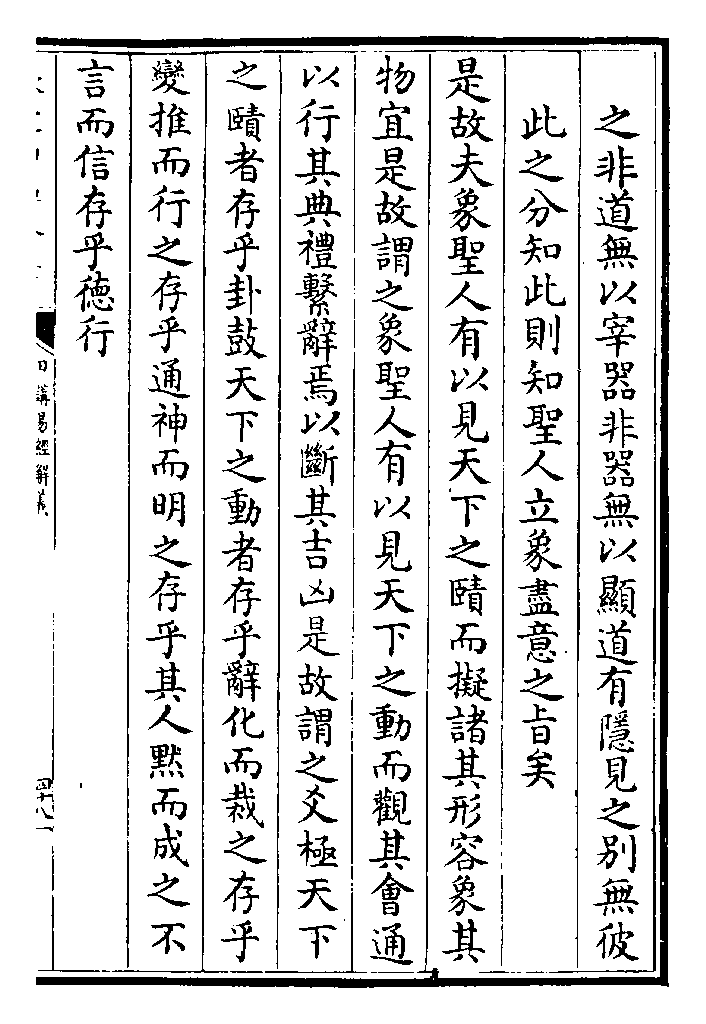 之非道無以宰器非器無以顯道有隱見之别無彼
此之分知此則知聖人立象盡意之旨矣
是故夫象聖人有以見天下之賾而擬諸其形容象其
物宜是故謂之象聖人有以見天下之動而觀其會通
以行其典禮繫辭焉以斷其吉凶是故謂之爻極天下
之賾者存乎卦鼓天下之動者存乎辭化而裁之存乎
變推而行之存乎通神而明之存乎其人黙而成之不
言而信存乎德行
日講易經解義